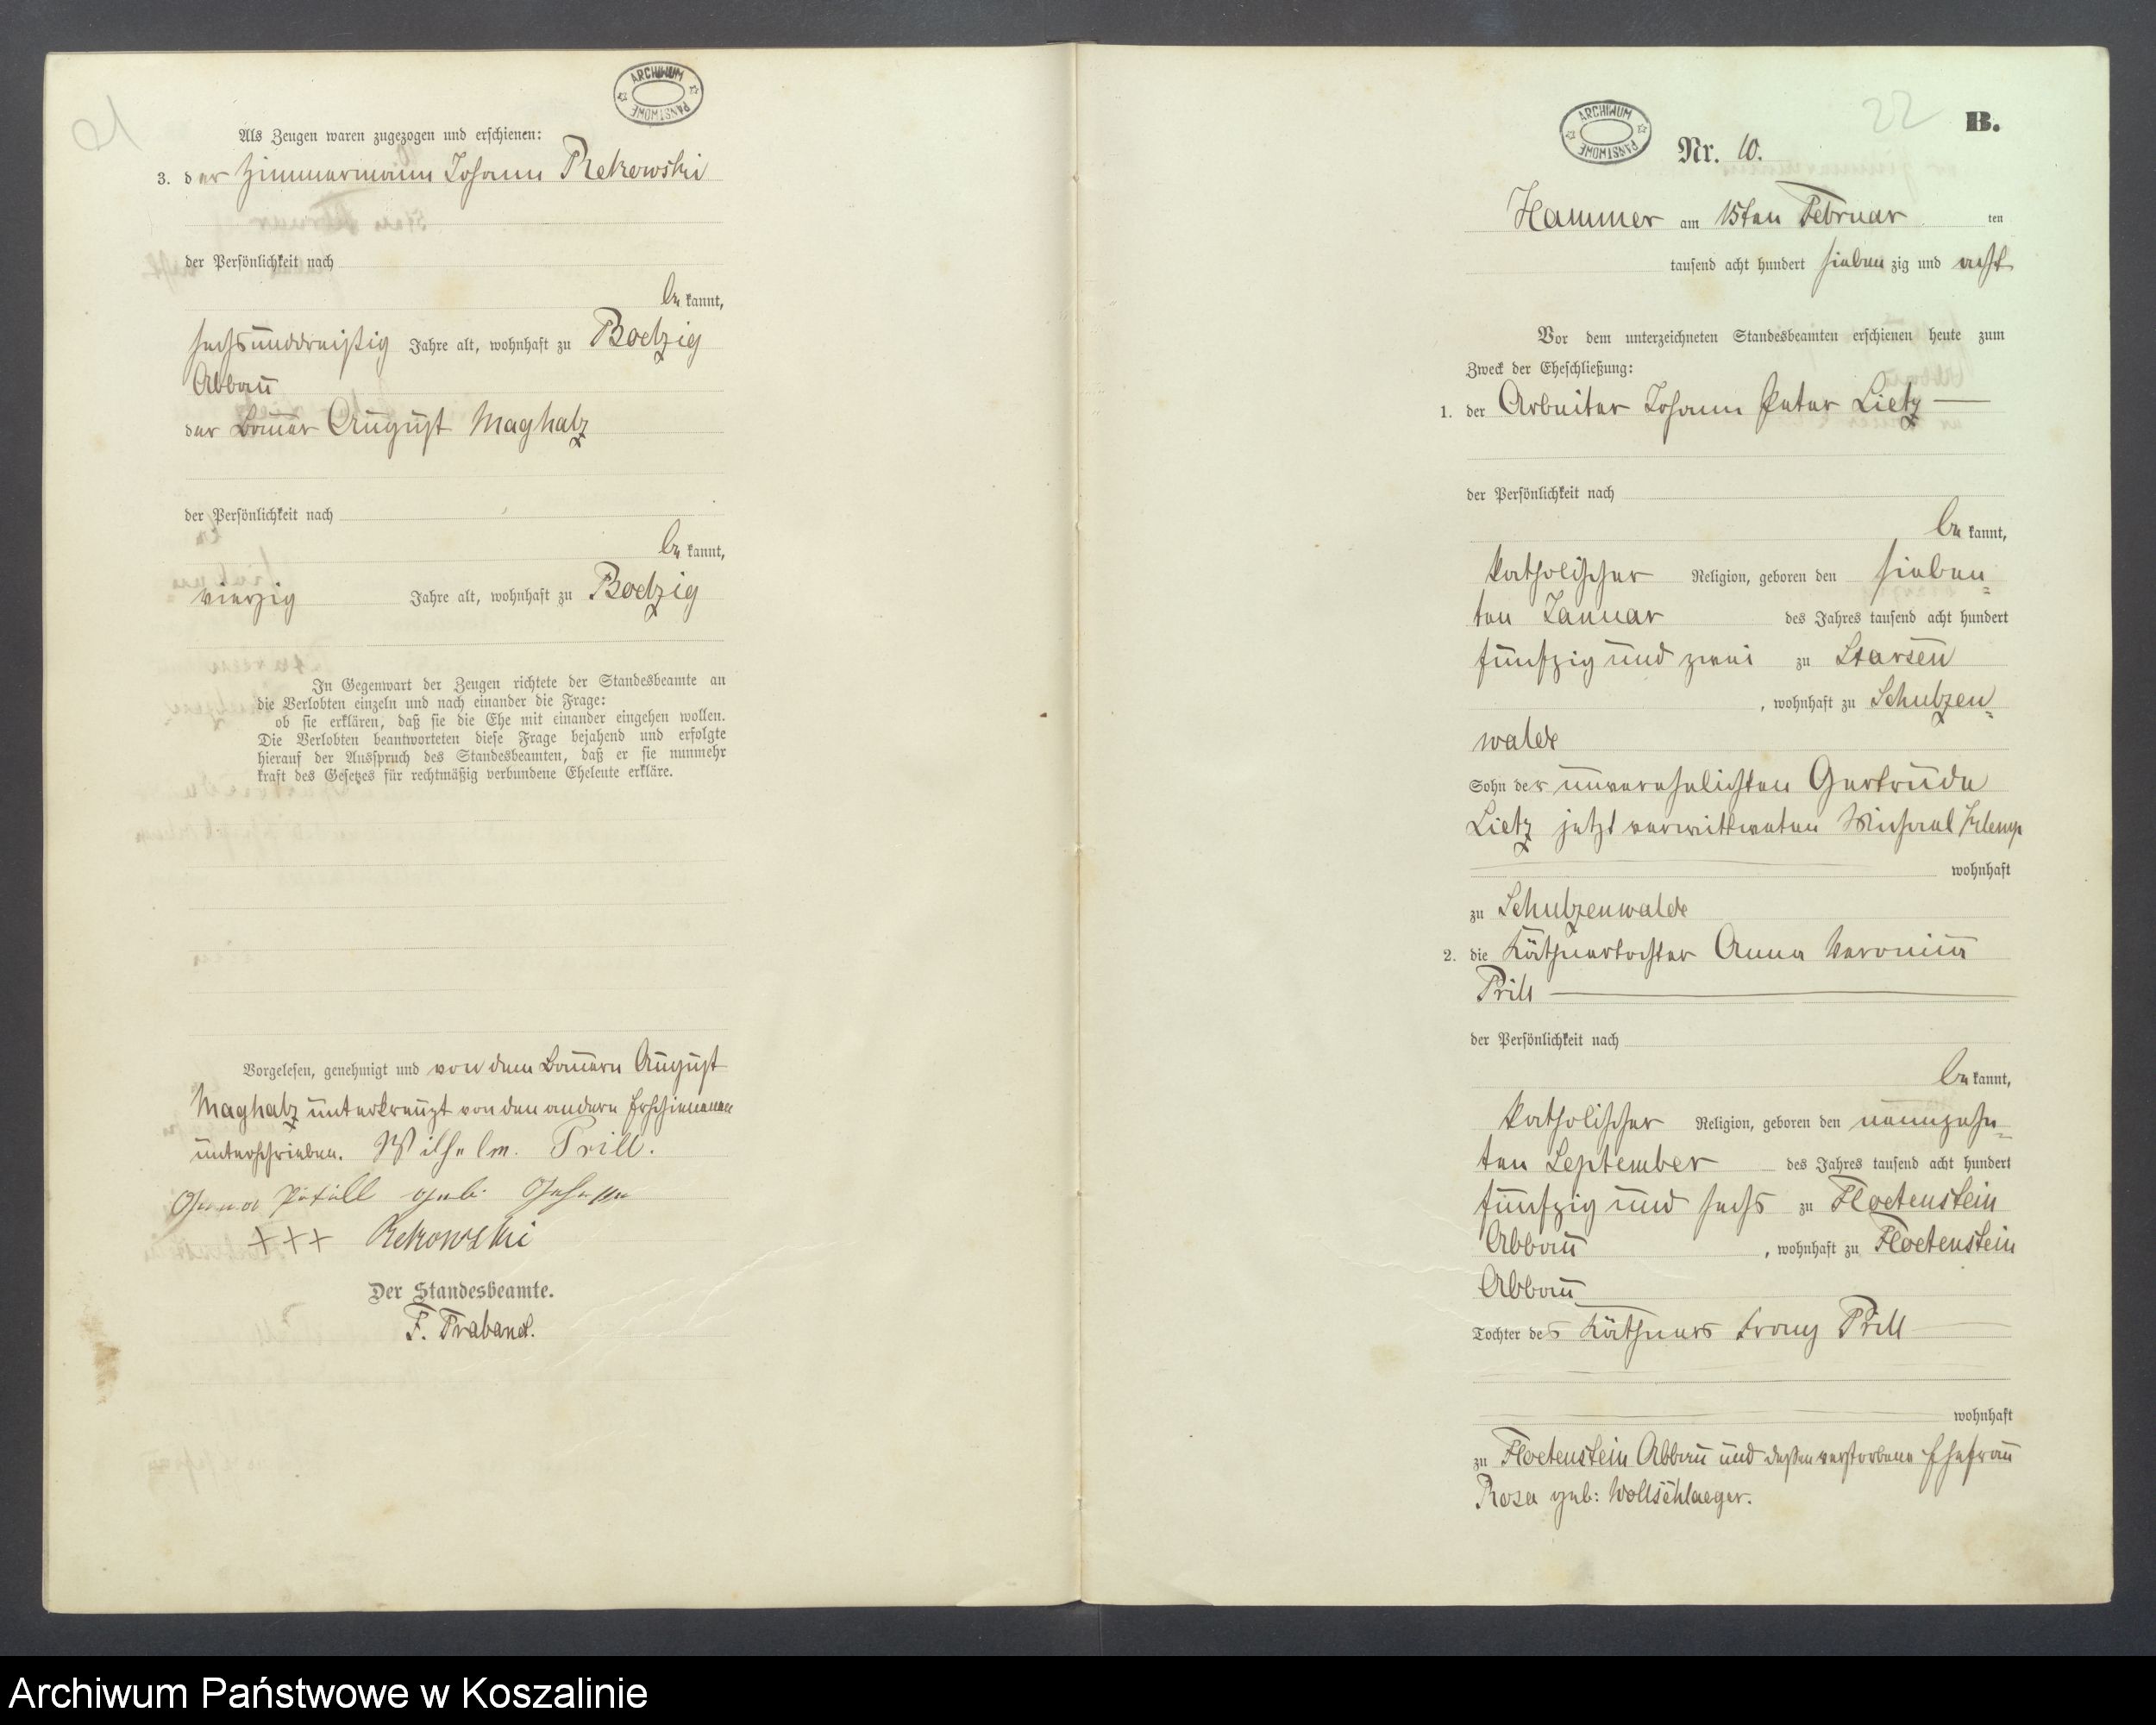 ARCHIWUM PAŃSTWOWE
Als Zeugen waren zugezogen und erschienen:
3. der Zimmermann Johann Rekowski
der Persönlichkeit nach
be kannt,
sechsunddreißig Jahre alt, wohnhaft zu Boetzig
Abbau
der Bauer August Maghatz
der Persönlichkeit nach
be kannt,
vierzig Jahre alt, wohnhaft zu Boetzig
In Gegenwart der Zeugen richtete der Standesbeamte an
die Verlobten einzeln und nach einander die Frage:
ob sie erklären, daß sie die Ehe mit einander eingehen wollen.
Die Verlobten beantworteten diese Frage bejahend und erfolgte
hierauf der Ausspruch des Standesbeamten, daß er sie nunmehr
kraft des Gesetzes für rechtmäßig verbundene Eheleute erkläre.
Vorgelesen, genehmigt und von dem Bauern August
Maghatz unterkreuzt von den andern Erschienenen
unterschrieben. Wilhelm. Prill.
geb.
+++ Rekowski
Der Standesbeamte.
F. Brabandt.
ARCHIWUM PAŃSTWOWE
22
B.
Nr. 10.
Hammer am 15ten Februar ten
tausend acht hundert sieben zig und acht
Vor dem unterzeichneten Standesbeamten erschienen heute zum
Zweck der Eheschließung:
1. der Arbeiter Johann Peter Lietz
der Persönlichkeit nach
be kannt,
katholischer Religion, geboren den sieben=
ten Januar des Jahres tausend acht hundert
fünfzig und zwei zu Starsen
, wohnhaft zu Schulzen=
walde
Sohn der unverehelichten Gertrude
Lietz jetzt verwittweten Michael
wohnhaft
zu Schulzenwalde
2. die Käthnertochter Anna Veronica
Prill
der Persönlichkeit nach
be kannt,
katholischer Religion, geboren den neunzehn=
ten September des Jahres tausend acht hundert
fünfzig und sechs zu Floetenstein
Abbau , wohnhaft zu Floetenstein
Abbau
Tochter des Käthners Franz Prill
wohnhaft
zu Floetenstein Abbau und deßen verstorbene Ehefrau
Rosa geb: Wollschlaeger.
Archiwum Państwowe w Koszalinie